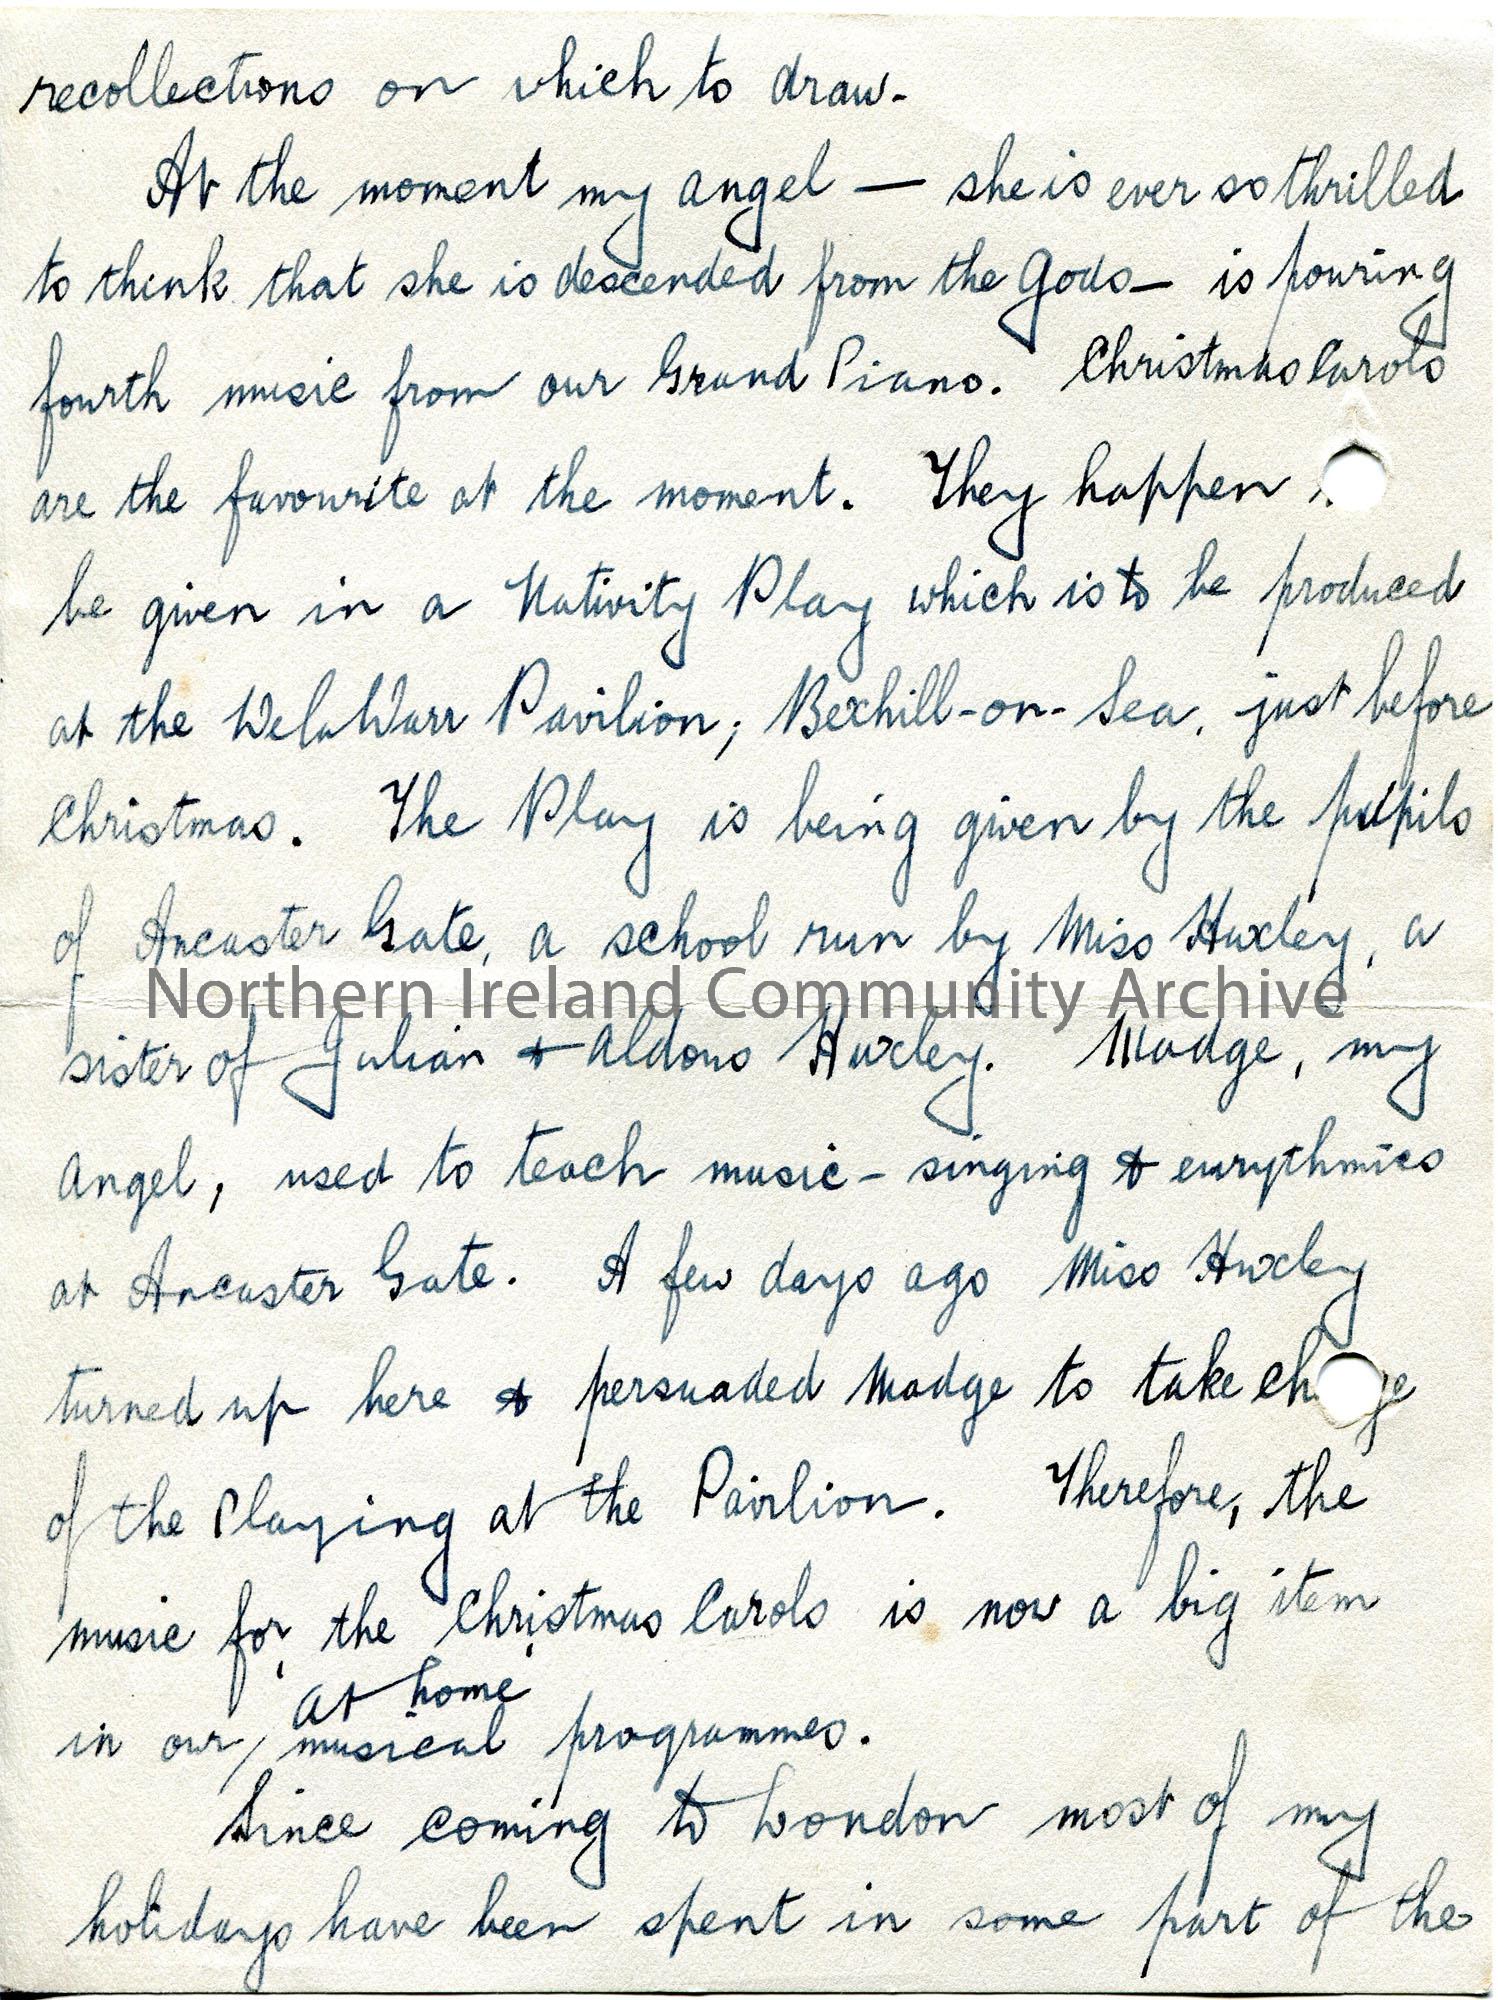 recollections on which to draw.
At the moment my angel — she is ever so thrilled
to think that she is descended from the Gods — is pouring
fourth music from our Grand Piano. Christmas Carols
are the favourite at the moment. They happen
be given in a Nativity Play which is to be produced
at the DelaWarr Pavilion; Bexhill-on-Sea, just before
Christmas. The Play is being given by the pupils
of Ancaster Gate, a school run by Miss Huxley, a
Northern Ireland Community Archive
sister of Julian & Aldous Huxley. Madge, my
angel, used to teach music - singing & eurythmics
at Ancaster Gate. A few days ago Miss Huxley
turned up here & persuaded Madge to take ch ge
of the Playing at the Pavilion. Therefore, the
music for, the Christmas Carols is now a big item
at home
in our / musical programmes.
Since coming to London most of my
holidays have been spent in some part of the